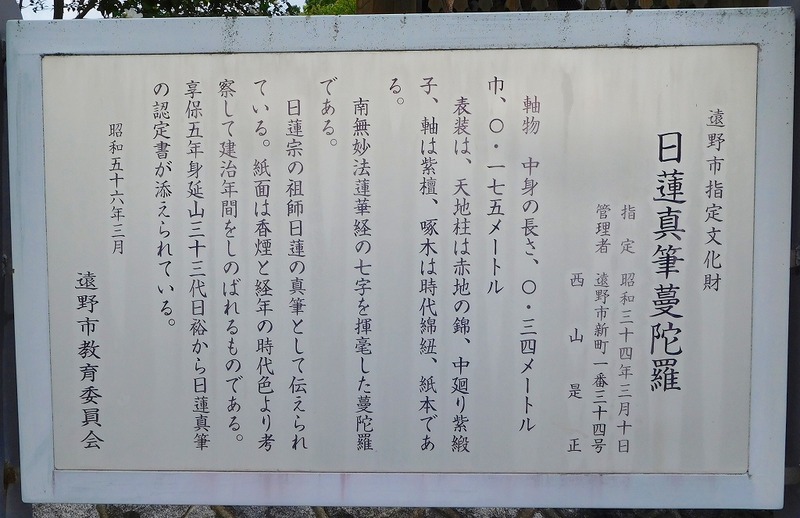 遠野市指定文化財
日蓮真筆蔓陀羅
指定 昭和三十四年三月十日
管理者 遠野市新町一番三十四号
西山是正
軸物 中身の長さ、〇・三四メートル
巾、〇・一七五メートル
表装は、天地柱は赤地の錦、中廻り紫緞
子、軸は紫檀、啄木は時代綿紐、紙本であ
る。
南無妙法蓮華経の七字を揮毫した蔓陀羅
である。
日蓮宗の祖師日蓮の真筆として伝えられ
ている。紙面は香煙と経年の時代色より考
察して建治年間をしのばれるものである。
享保五年身延山三十三代日裕から日蓮真筆
の認定書が添えられている。
昭和五十六年三月
遠野市教育委員会